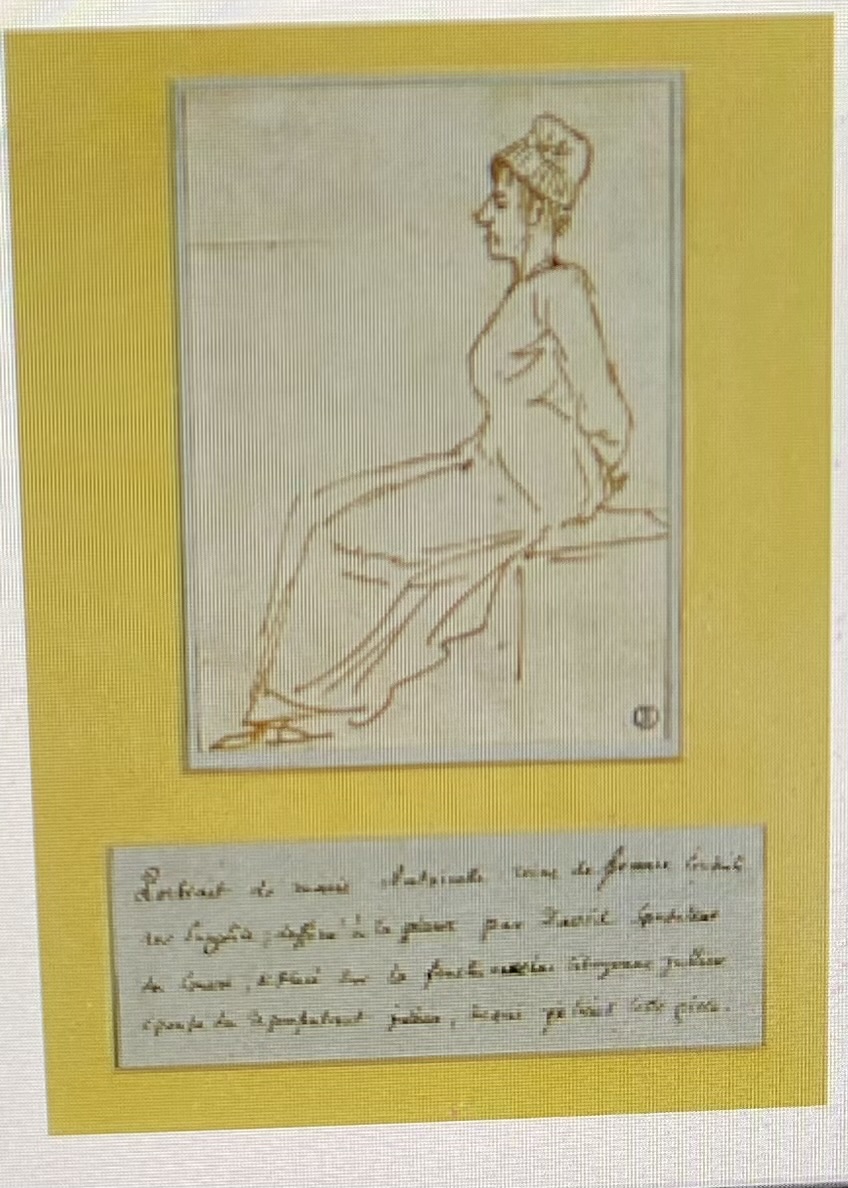 Portrait de marie Antoinette reine de france conduite
au supplice; dessiné à la plume par David Spectateur
du Convoi, & placé sur la fenêtre citoyenne jullien
épouse du représentant jullien, de qui je tiens cette pièce.